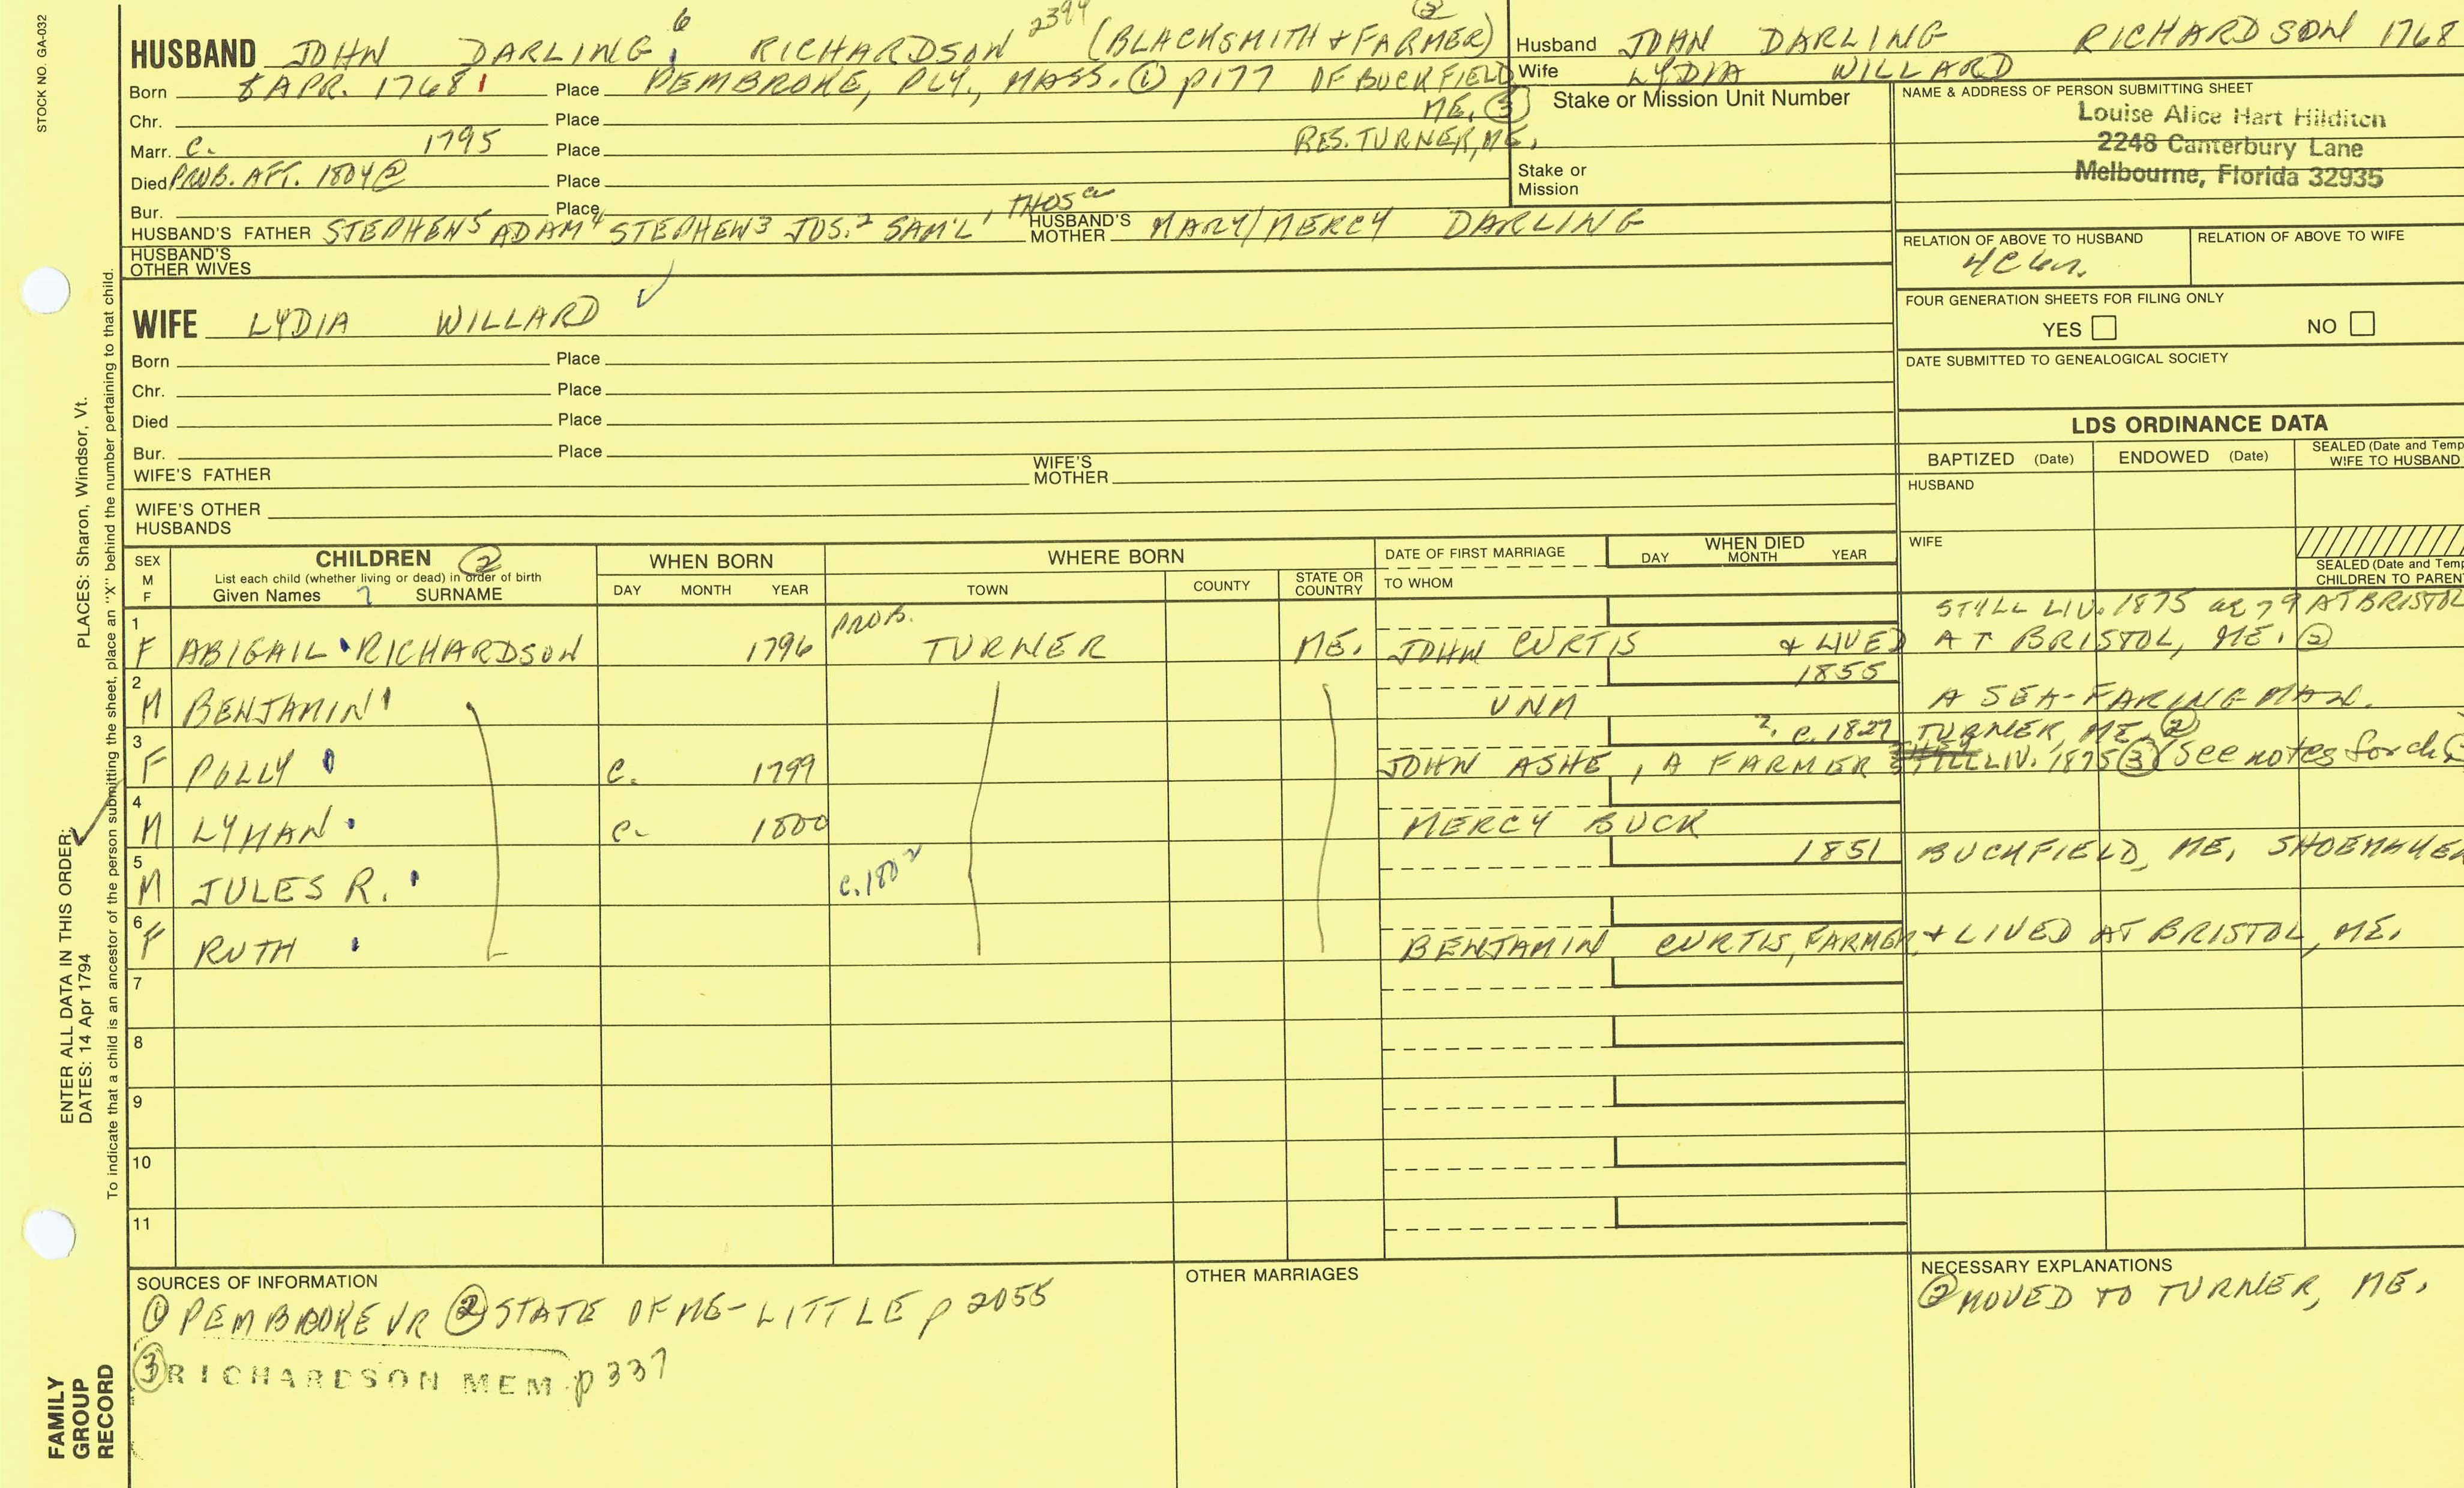 STOCK NO. GA-032
HUSBAND JOHN DARLING 6 RICHARDSON 2394 (BLACKSMITH & FARMER) 2
Born 8 APR. 1768 1 Place PEMBROKE, PLY., MASS. ① p177 OF BUCKFIELD
ME, ③
Chr. Place
Marr. C. 1795 Place RES. TURNER, ME.
Died PROB. AFT. 1804 ② Place
Bur. Place
HUSBAND'S FATHER STEPHEN5 ADAM4 STEPHEN3 JOS.2 SAM'L1 THOSa HUSBAND'S MOTHER MARY/MERCY DARLING
HUSBAND'S OTHER WIVES
WIFE LYDIA WILLARD ✓
Born Place
Chr. Place
Died Place
Bur. Place
WIFE'S FATHER WIFE'S MOTHER
WIFE'S OTHER HUSBANDS
Husband JOHN DARLING RICHARDSON 1768
Wife LYDIA WILLARD
Stake or Mission Unit Number
Stake or Mission
NAME & ADDRESS OF PERSON SUBMITTING SHEET
Louise Alice Hart Hilditch
2248 Canterbury Lane
Melbourne, Florida 32935
RELATION OF ABOVE TO HUSBAND RELATION OF ABOVE TO WIFE
4C 6r.
FOUR GENERATION SHEETS FOR FILING ONLY
YES NO
DATE SUBMITTED TO GENEALOGICAL SOCIETY
LDS ORDINANCE DATA
BAPTIZED (Date) ENDOWED (Date) SEALED (Date and Temp
WIFE TO HUSBAND
HUSBAND
WIFE
SEALED (Date and Temp
CHILDREN TO PAREN
SEX M F CHILDREN ② WHEN BORN WHERE BORN DATE OF FIRST MARRIAGE WHEN DIED
List each child (whether living or dead) in order of birth
Given Names SURNAME DAY MONTH YEAR TOWN COUNTY STATE OR COUNTRY TO WHOM DAY MONTH YEAR
STILL LIV. 1875 ae 79 AT BRISTOL
1 F ABIGAIL RICHARDSON 1796 PROB. TURNER ME. JOHN CURTIS & LIVED AT BRISTOL, ME. ②
1855
2 M BENJAMIN UNM A SEA-FARING MAN.
?. c. 1827 TURNER, ME. ②
3 F POLLY C. 1799 JOHN ASHE, A FARMER STILL LIV. 1875 ③ (see notes for ch
4 M LYMAN C. 1800 MERCY BUCK
1851 BUCKFIELD, ME, SHOEMAKER
5 M JULES R. c. 1802
6 F RUTH BENJAMIN CURTIS, FARMER, & LIVED AT BRISTOL, ME.
7
8
9
10
11
SOURCES OF INFORMATION
① PEMBROKE VR ② STATE OF ME - LITTLE p 2055
③ RICHARDSON MEM p 337
OTHER MARRIAGES
NECESSARY EXPLANATIONS
② MOVED TO TURNER, ME.
PLACES: Sharon, Windsor, Vt.
To indicate that a child is an ancestor of the person submitting the sheet, place an "X" behind the number pertaining to that child.
ENTER ALL DATA IN THIS ORDER:
DATES: 14 Apr 1794
FAMILY
GROUP
RECORD